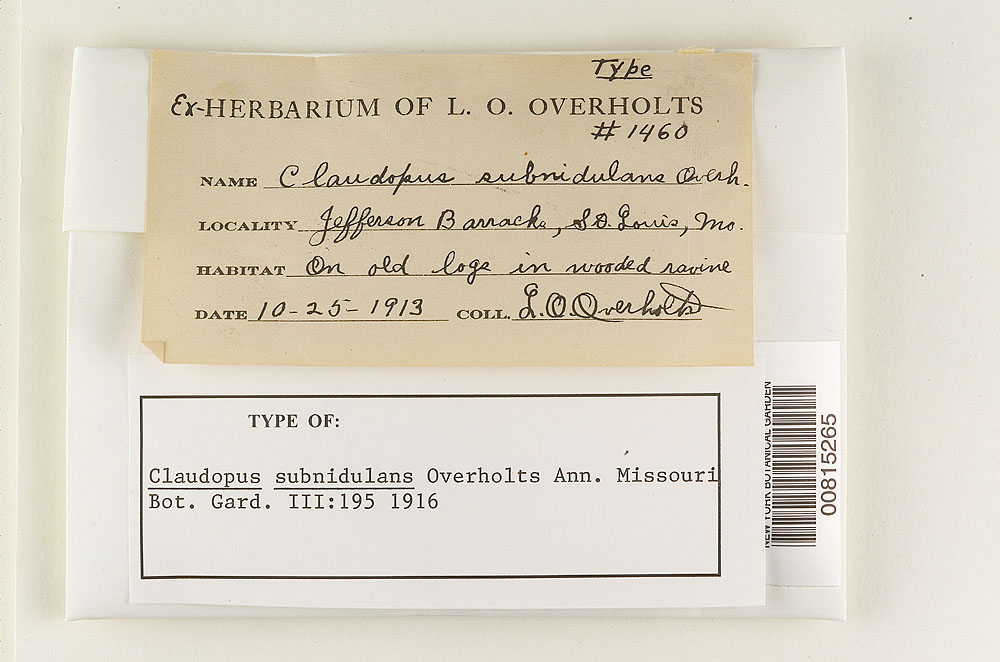 Type
Ex-HERBARIUM OF L. O. OVERHOLTS
# 1460
NAME Claudopus subnidulans Overh.
LOCALITY Jefferson Barracks, St. Louis, Mo.
HABITAT On old logs in wooded ravine
DATE 10-25-1913 COLL. L.O.Overholts
TYPE OF:
Claudopus subnidulans Overholts Ann. Missouri
Bot. Gard. III:195 1916
NEW YORK BOTANICAL GARDEN
00815265